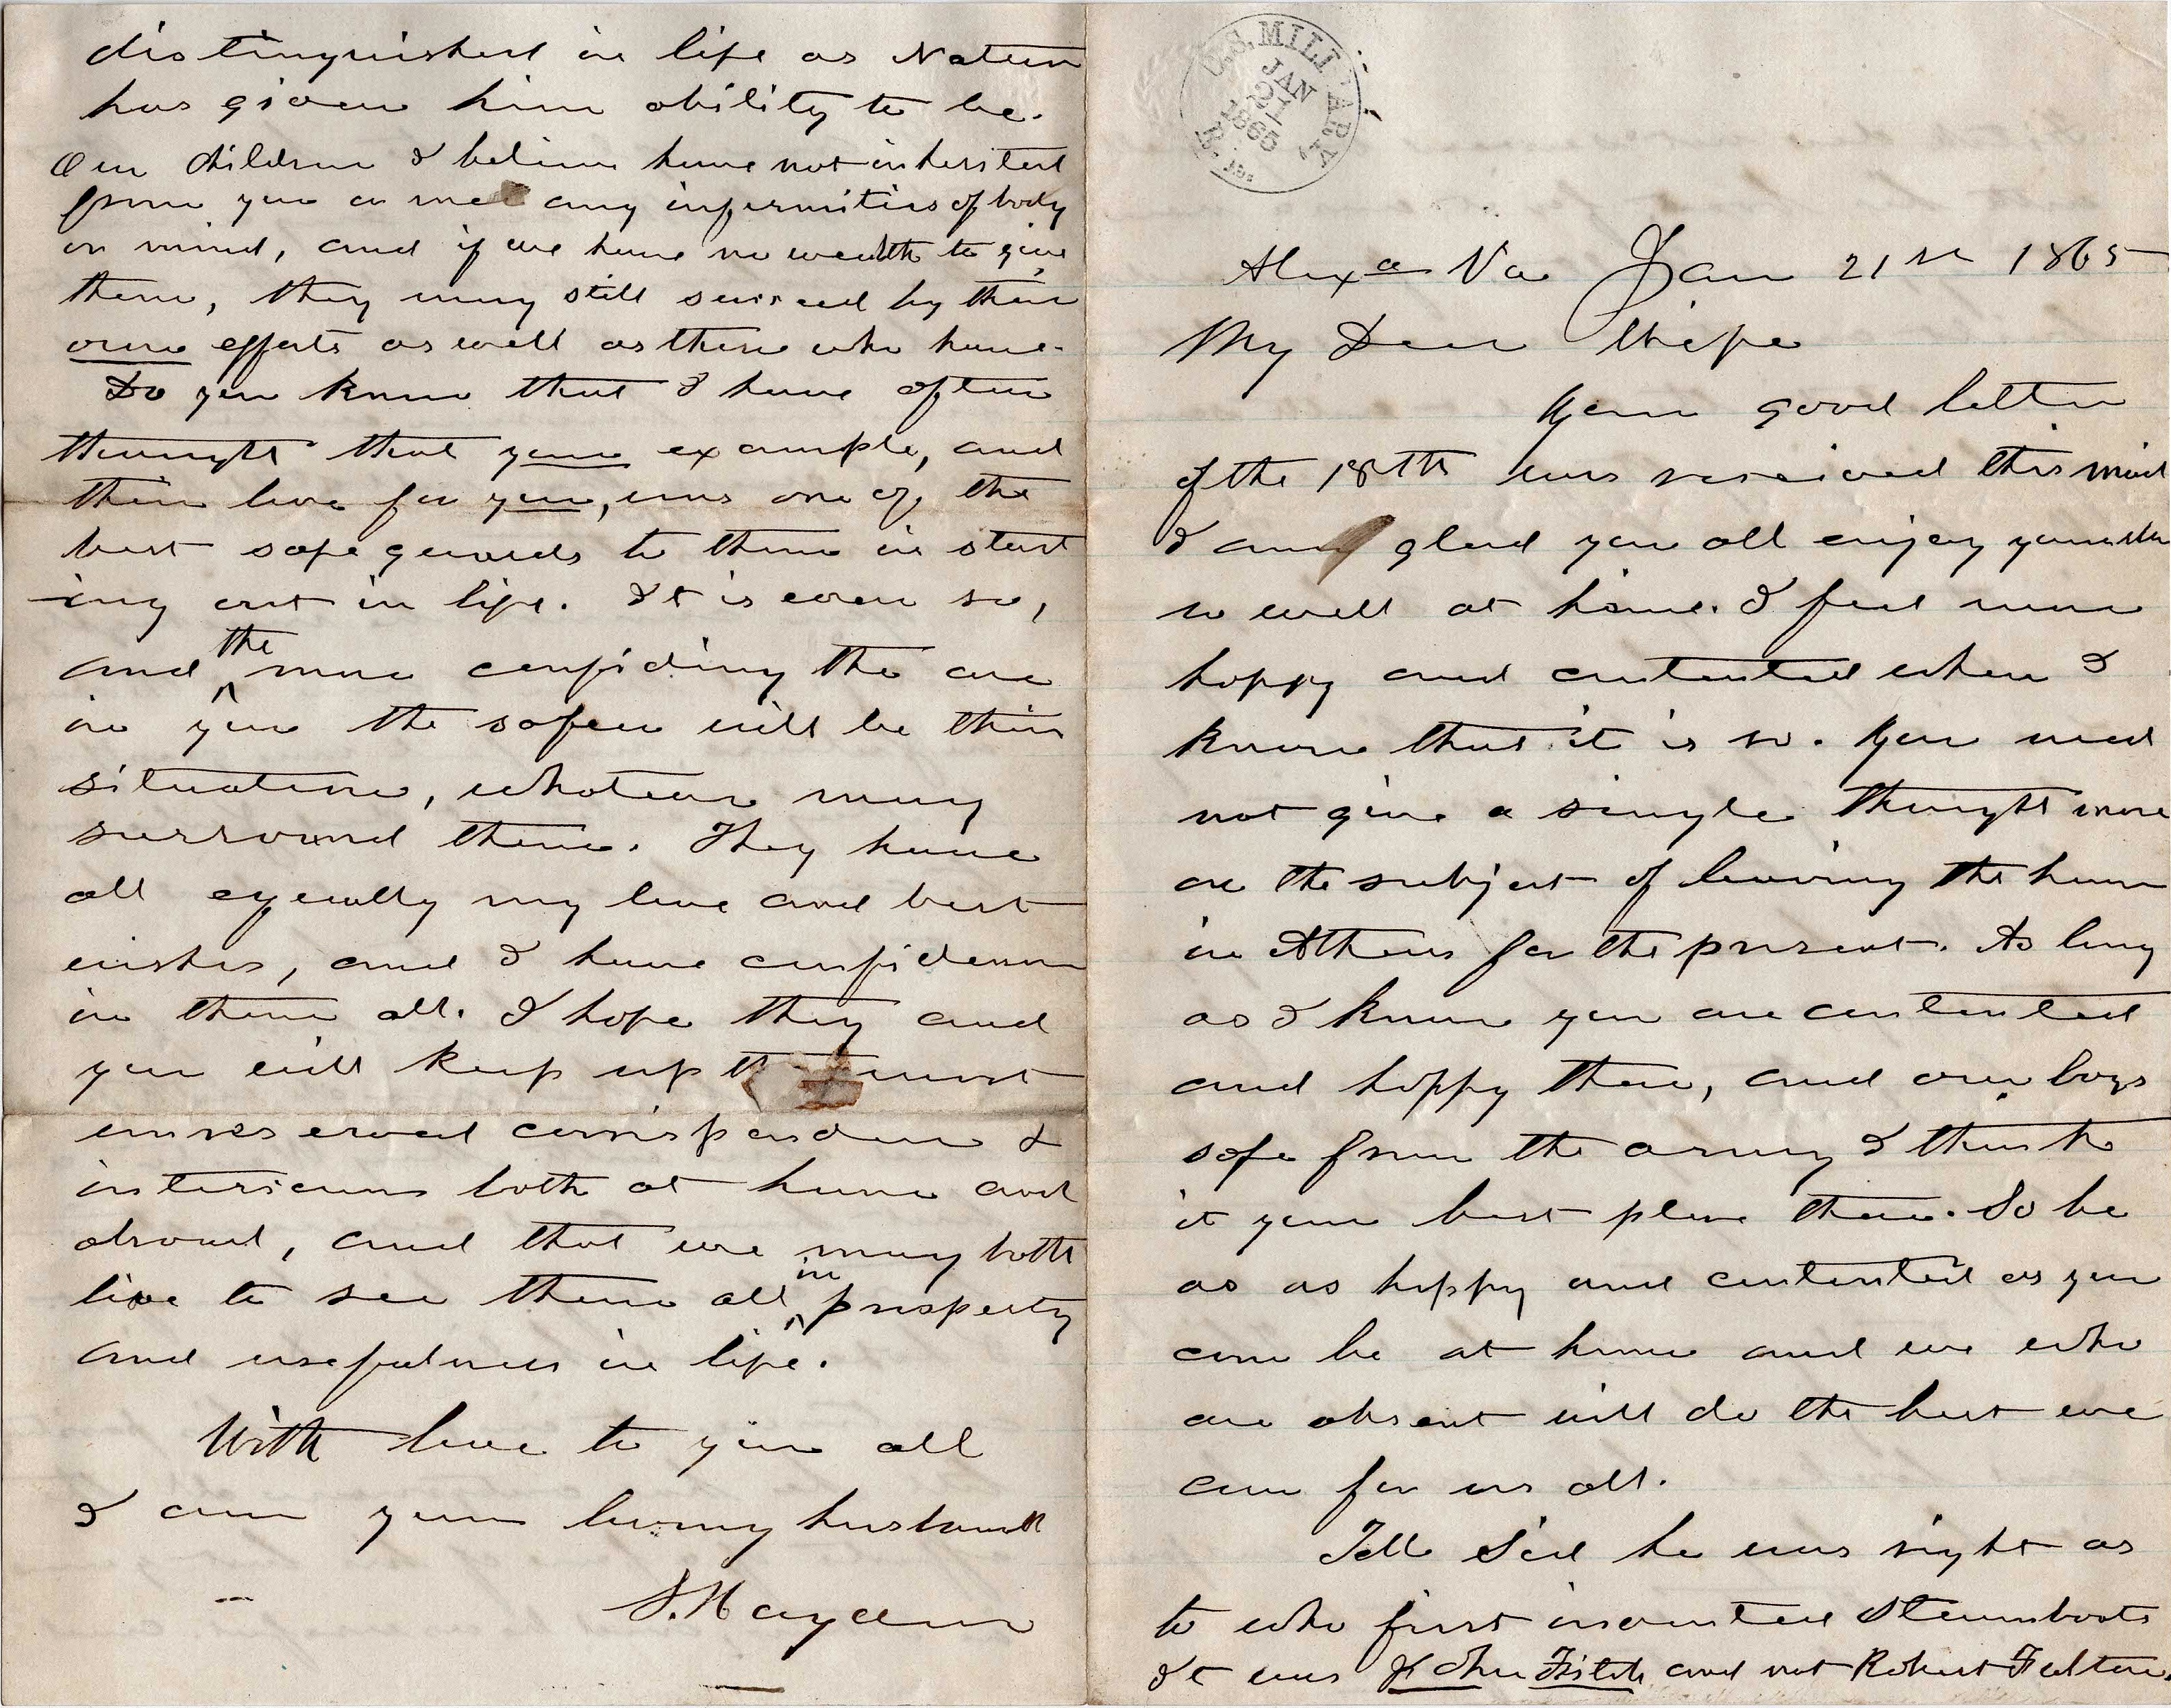 distinguished in life as Nature
has given him ability to be.
Our children I believe have not inherited
from you or me any infirmities of body
or mind, and if we have no wealth to give
them, they may still succeed by their
own efforts as well as those who have.
Do you know that I have often
thought that your example, and
their love for you, was one of the
best safe guards to them in start
-ing out in life. It is even so,
and the more confiding the are
in you the safer will be their
situation, whatever may
surround them. They have
all equally my love and best
wishes, and I have confidence
in them all. I hope they and
you will keep up most
unreserved correspondence &
intercourse both at home and
abroad, and that we may both
live to see them all in prosperty
and usefulness in life.
With love to you all
I am your loving husband
S. Hayden
U.S. MILITARY R. R's.
JAN
21
1865
Alexa Va Jan 21st 1865
My Dear Wife
Your good letter
of the 18th was received this mail
I am glad you all enjoy yourselves
so well at home. I feel more
happy and contented when I
know that it is so. You need
not give a single thought more
on the subject of leaving the home
in Athens for the present. As long
as I know you are contented
and happy there, and our boys
safe from the army I think
it your best place there. So be
as as happy and contented as you
can be at home and we who
are absent will do the best we
can for us all.
Tell Sid he was right as
to who first invented Steamboats
It was John Fitch and not Robert Fulton.